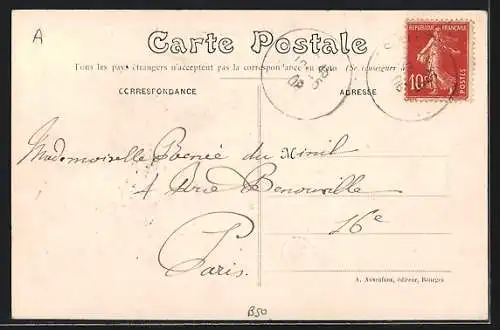 A
Carte Postale
Tous les pays étrangers n'acceptent pas la correspondance au recto (Se renseigner
CORRESPONDANCE
ADRESSE
REPUBLIQUE FRANÇAISE
10c
POSTES
Mademoiselle Renée du Minil
4 Rue Benouville
16e
Paris.
A. Auxenfans, éditeur, Bourges
B50